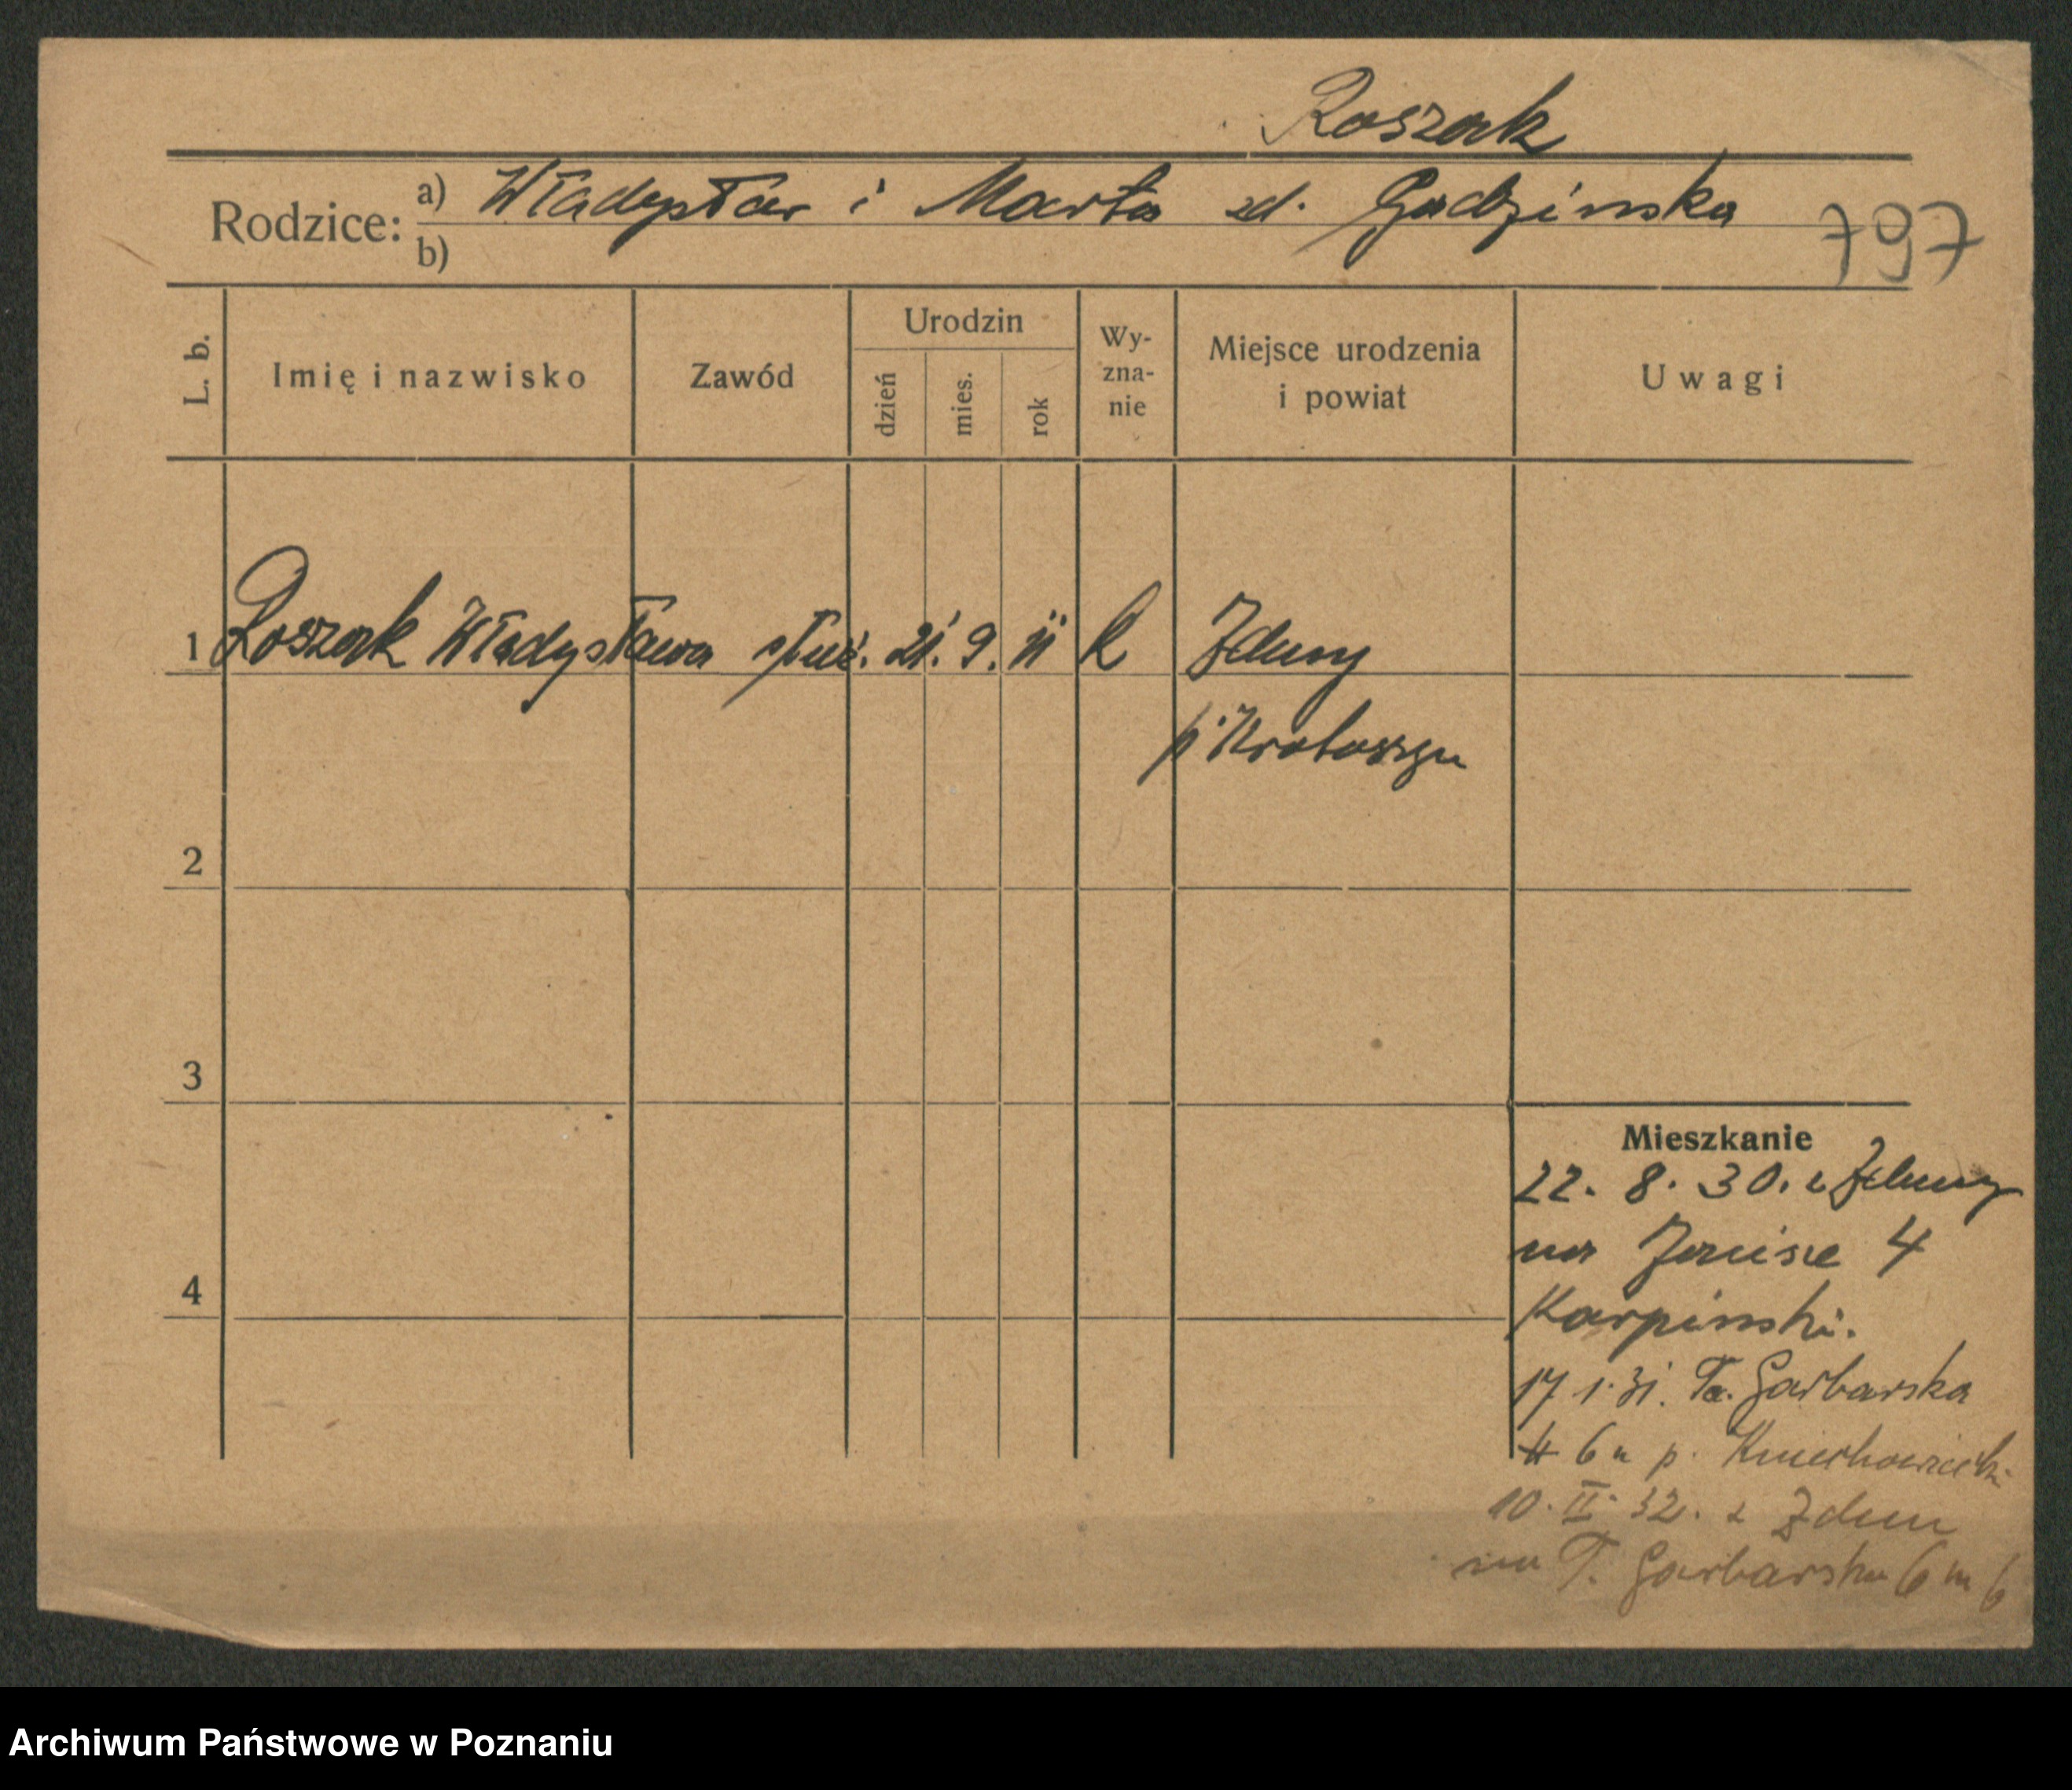 Roszak
Rodzice: a) Władysław i Marta zd. Gadzinska
b)
797
L. b. Imię i nazwisko Zawód Urodzin dzień mies. rok Wy-zna-nie Miejsce urodzenia i powiat Uwagi
1 Roszak Władysława służ. 21. 9. 11 R Zduny
p. Krotoszyn
2
3
4
Mieszkanie
22. 8. 30. z Zduny
na 4
Karpinski.
17 1. 31. Garbarska
6 p.
10. II. 32. z Zdun
na T. Garbarska 6 m 6
Archiwum Państwowe w Poznaniu